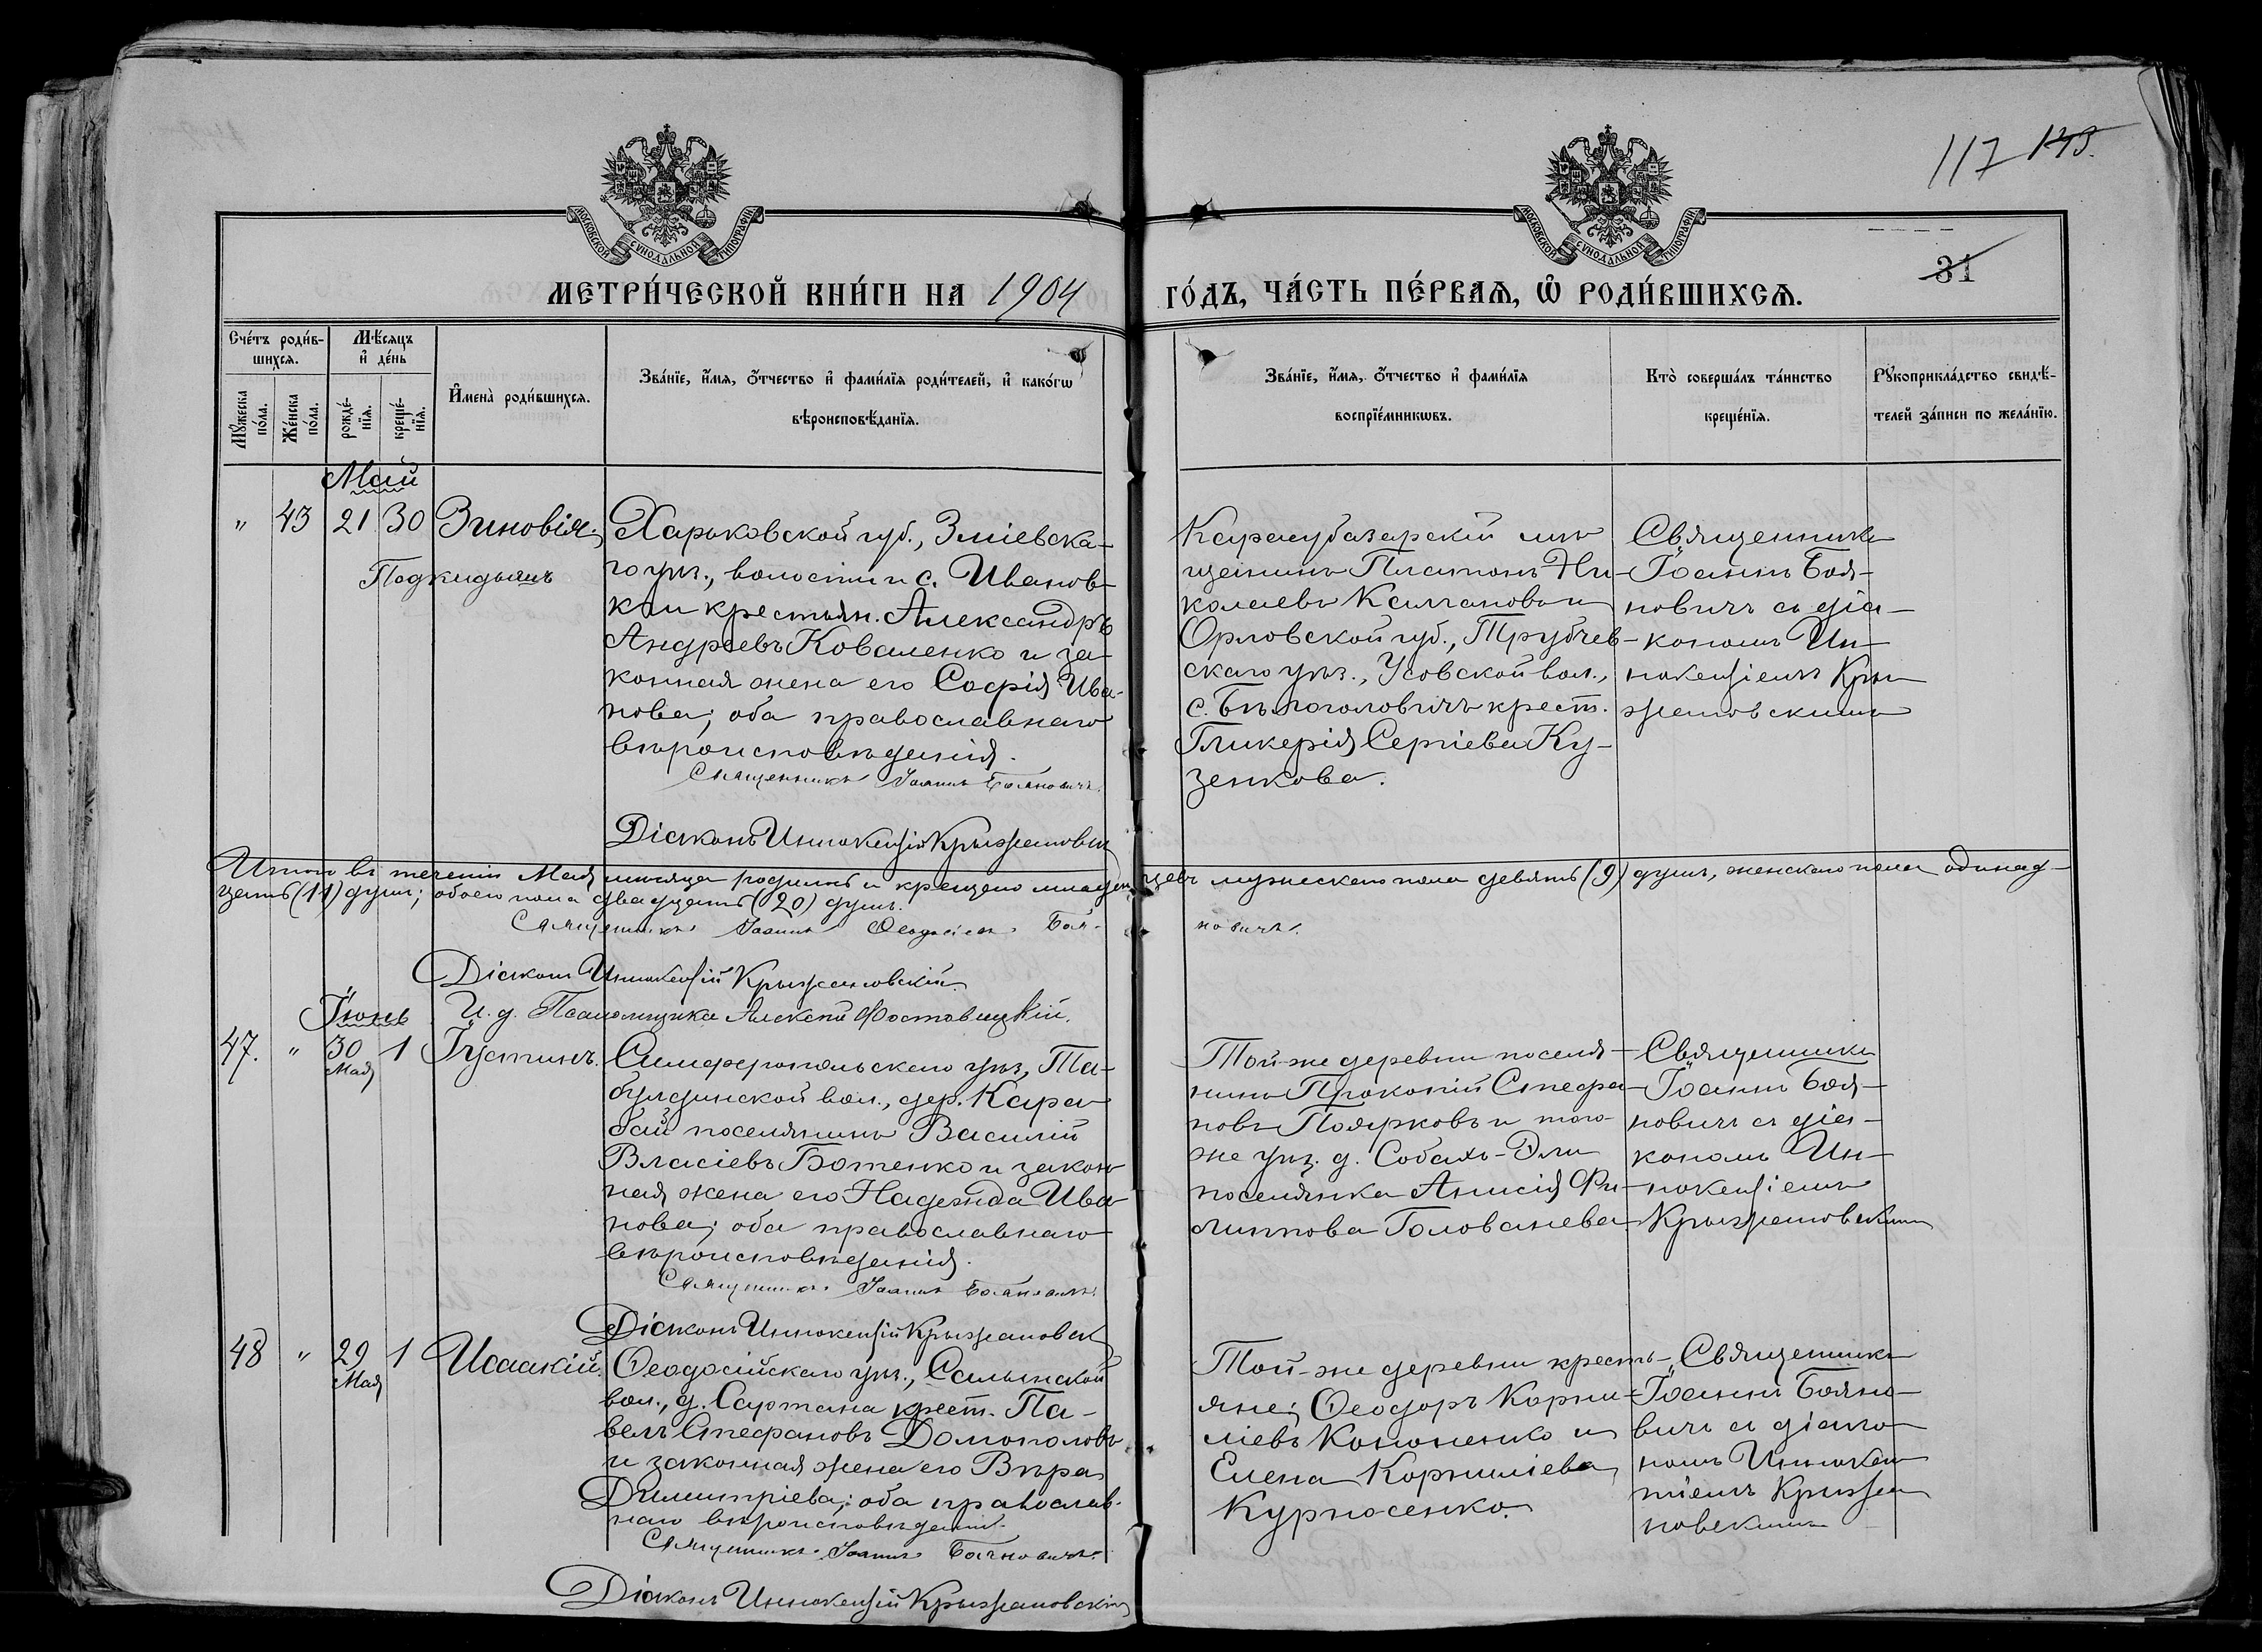 117 143.
31
МОСКОВСКОЙ СѴНОДАЛЬНОЙ ТИПОГРАФІИ
МОСКОВСКОЙ СѴНОДАЛЬНОЙ ТИПОГРАФІИ
МЕТРИ́ЧЕСКОЙ КНИ́ГИ НА 1904
ГО́ДЪ, ЧА́СТЬ ПЕ́РВАѦ, Ѡ҆ РОДИ́ВШИХСѦ.
Сче́тъ роди́в-
шихсѧ.
Мꙋ́жеска по́ла.
Же́нска по́ла.
Мѣ́сѧцъ
и҆ де́нь
рожде́-
нїѧ.
креще́-
нїѧ.
И҆мена̀ роди́вшихсѧ.
Зва́нїе, и҆́мѧ, ѻ҆́тчество и҆ фами́лїѧ роди́телей, и҆ како́гѡ
вѣроисповѣ́данїѧ.
Зва́нїе, и҆́мѧ, ѻ҆́тчество и҆ фами́лїѧ
воспрїе́мникѡвъ.
Кто̀ соверша́лъ та́инство
креще́нїѧ.
Рꙋкоприкла́дство свидѣ́-
телей за́писи по жела́нїю.
Май
" 43 21 30 Зиновія
Подкидышъ
Харьковской губ., Зміевска-
го уѣз., волости и с. Иванов-
ки крестьян. Александръ
Андреевъ Коваленко и за-
конная жена его Софія Ива-
нова; оба православнаго
вѣроисповѣданія.
Священникъ Іоаннъ Бояновичъ.
Діаконъ Иннокентій Крыжановскій
Карасубазарскій мѣ-
щанинъ Платонъ Ни-
колаевъ Калгановъ и
Орловской губ., Трубчев-
скаго уѣз., Усовской вол.,
с. Бѣлоголовичъ крест.
Гликерія Сергіева Ку-
зенкова.
Священникъ
Іоаннъ Боя-
новичъ съ діа-
кономъ Ин-
нокентіемъ Кры-
жановскимъ
Итого въ теченіи Мая мѣсяца родилось и крещено младенцевъ мужескаго пола девять (9) душъ, женскаго пола одинад-
цать (11) душъ; обоего пола двадцать (20) душъ.
Священникъ Іоаннъ Ѳеодосіевъ Боя-новичъ.
Діаконъ Иннокентій Крыжановскій.
И. д. Псаломщика Алексѣй Фостовицкій.
Іюнь
47. " 30 1 Іустинъ.
Мая
Симферопольскаго уѣз., Та-
булдинской вол., дер. Кара-
бай поселянинъ Василій
ВласіевъБотенко и закон-
ная жена его Надежда Ива-
нова; оба православнаго
вѣроисповѣданія.
Священникъ Іоаннъ Бояновичъ.
Діаконъ Иннокентій Крыжановскій
Той-же деревни поселя-
нинъ Прокопій Стефа-
новъ Поярковъ и того-
же уѣз. д. Собахъ-Эли
поселянка Анисія Фи-
липпова Голованева
Священникъ
Іоаннъ Боя-
новичъ съ діа-
кономъ Ин-
нокентіемъ
Крыжановскимъ
48 " 29 1 Исаакій.
Мая
Ѳеодосійскаго уѣз., Салынской
вол., д. Сартана крест. Па-
велъ Стефановъ Домополовъ
и законная жена его Вѣра
Димитріева; оба православ-
наго вѣроисповѣданія.
Священникъ Іоаннъ Бояновичъ.
Діаконъ Иннокентій Крыжановскій
Той-же деревни кресть-
яне; Ѳеодоръ Корни-
ліевъ Кононенко и
Елена Корниліева
Курносенко.
Священникъ
Іоаннъ Бояно-
вичъ съ діако-
номъ Иннокен-
тіемъ Крыжа-
новскимъ